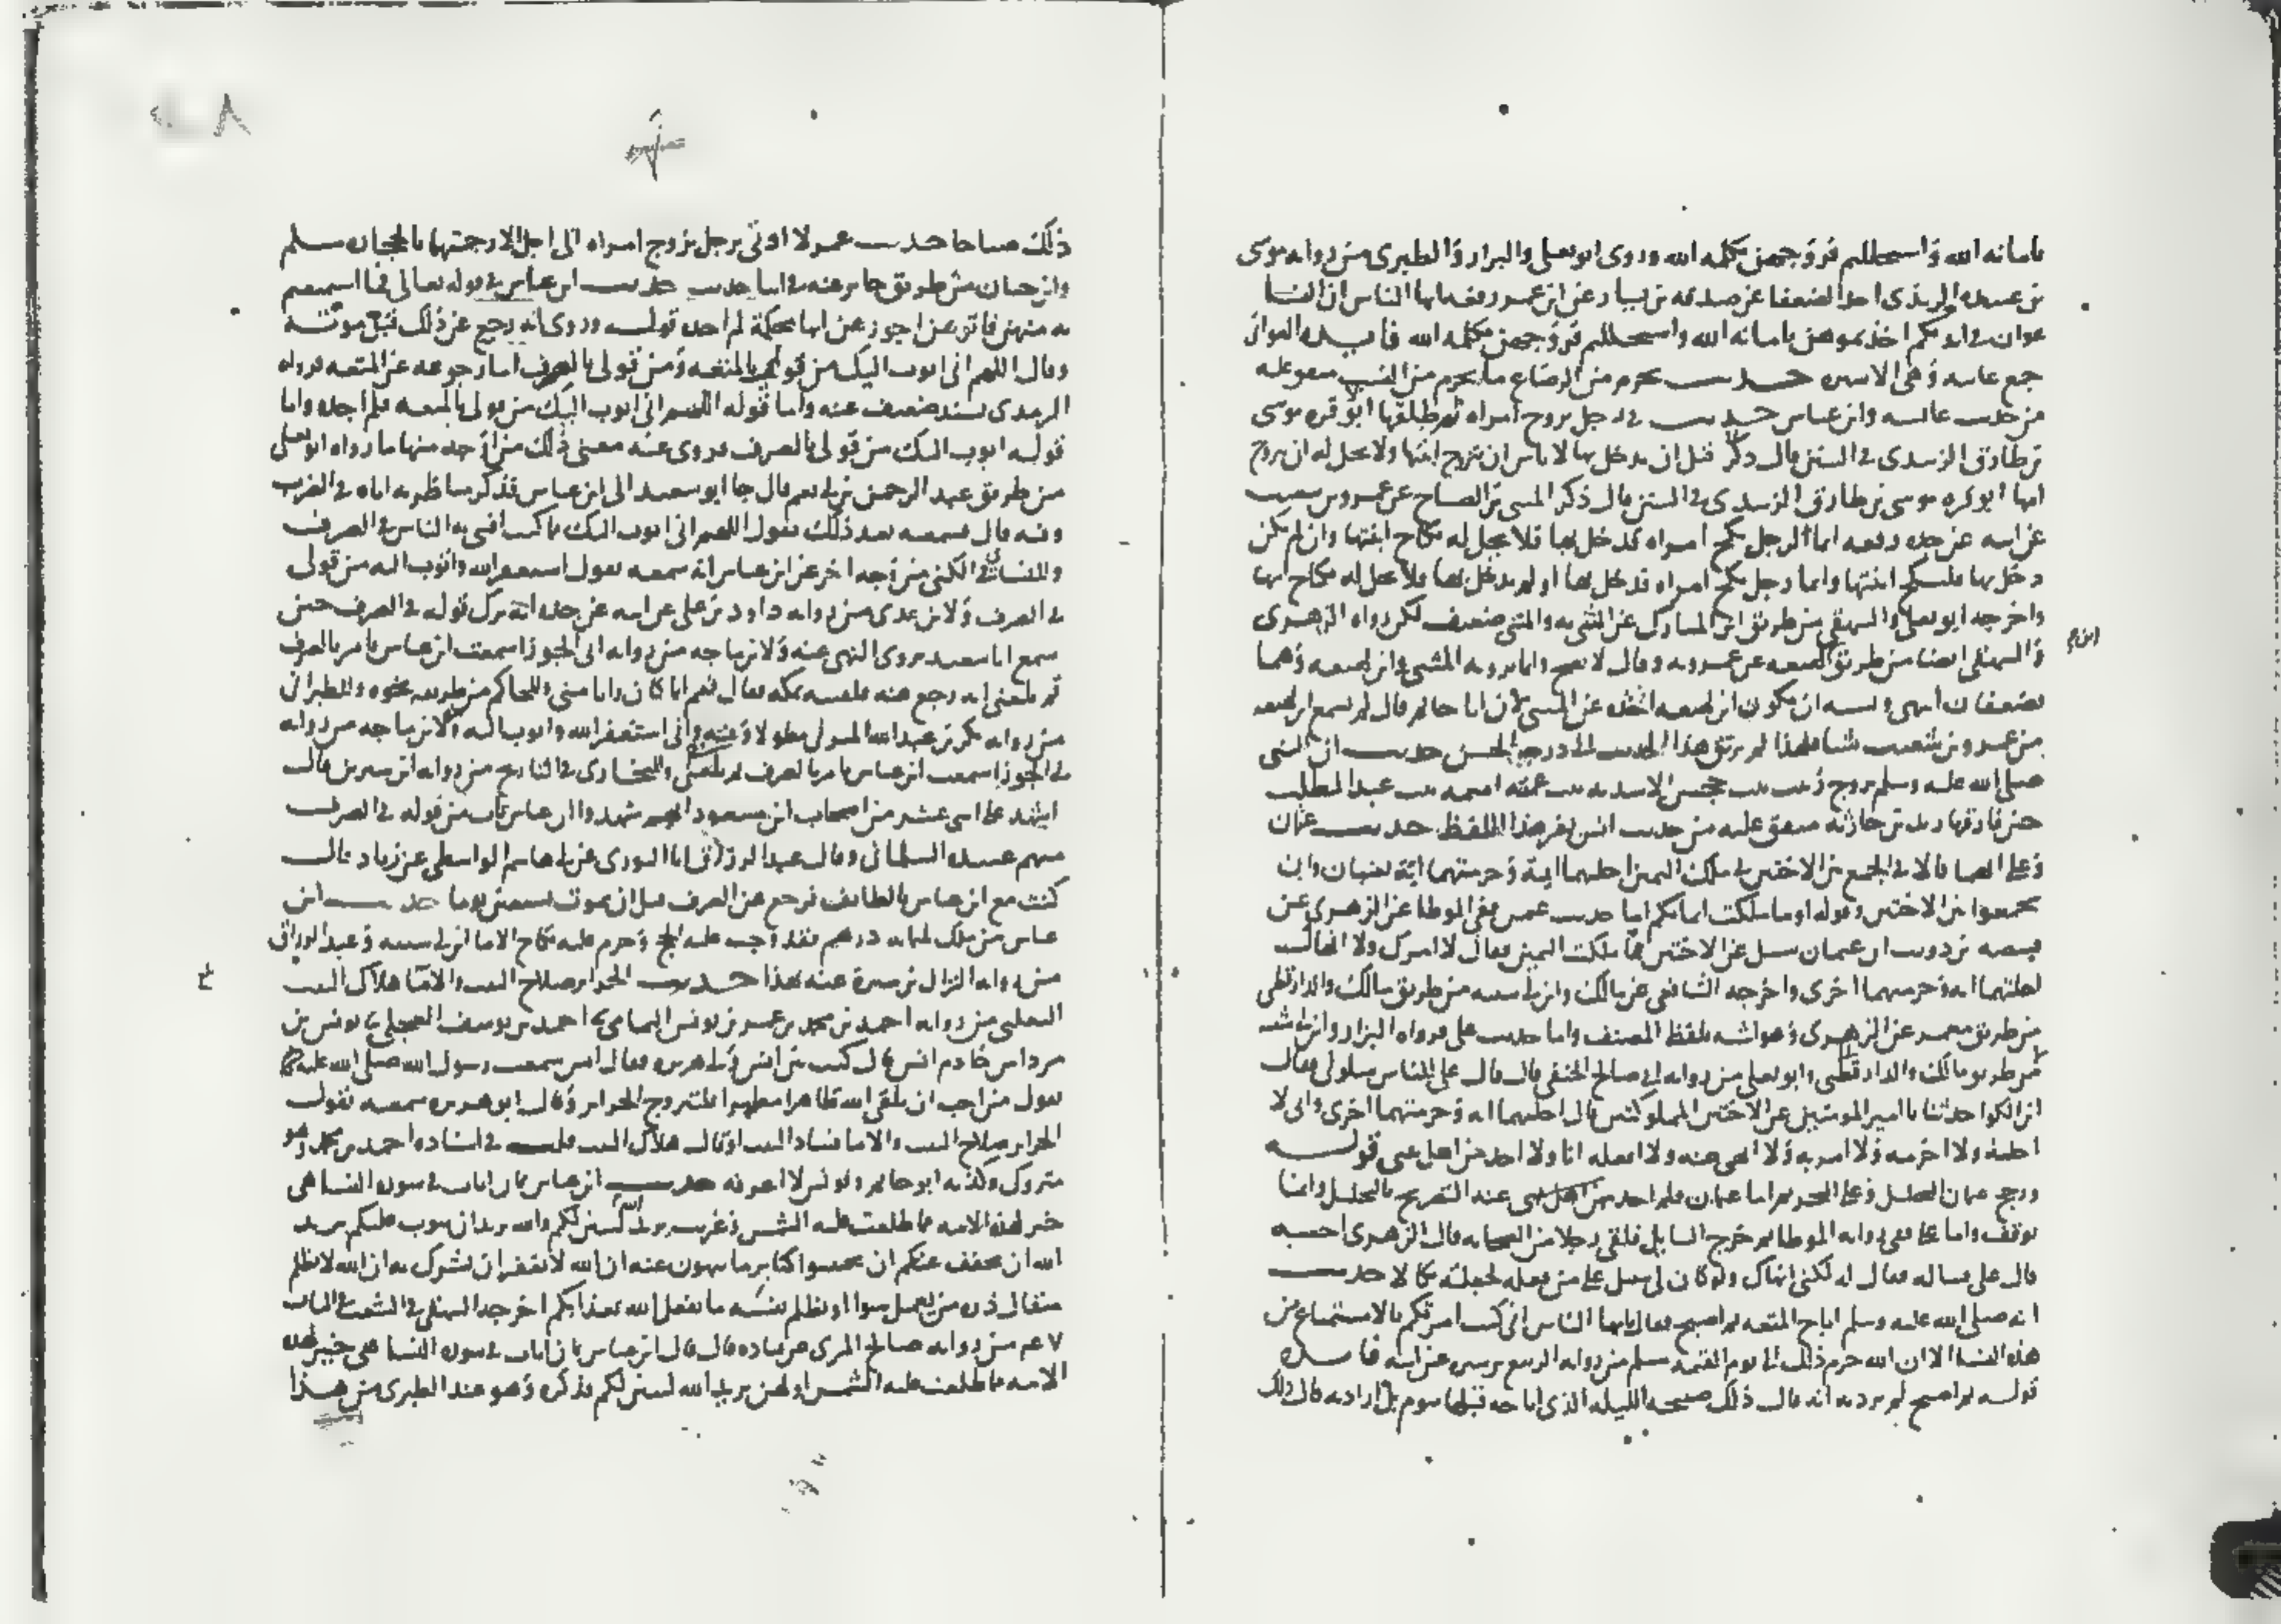 بامانة الله واستحللتم فروجهن بكلمة الله وروى ابو يعلى والبزار والطبرى من رواية موسى
بن عبيدة الربذى احد الضعفا عن صدقة بن يسار عن ابن عمر رفعه ايها الناس ان النسا
عوان فى ايديكم اخذتموهن بامانة الله واستحللتم فروجهن بكلمة الله فايدة العوانى
جمع عانية وهى الاسيرة حديث يحرم من الرضاع ما يحرم من النسب متفق عليه
من حديث عائشة وابن عباس حديث فى رجل تزوج امراة ثم طلقها ابو قرة موسى
بن طارق الزبيدى فى السنن قال ذكر قبل ان يدخل بها لا باس ان يتزوج ابنتها ولا يحل له ان يتزوج
امها ابو قرة موسى بن طارق الزبيدى فى السنن قال ذكر المثنى بن الصباح عن عمرو بن شعيب
عن ابيه عن جده رفعه ايما الرجل نكح امراة فدخل بها فلا يحل له نكاح ابنتها وان لم يكن
دخل بها فلينكح ابنتها وايما رجل نكح امراة فدخل بها او لم يدخل بها فلا يحل له نكاح امها
واخرجه ابو يعلى والبيهقى من طريق ابن المبارك عن المثنى به والمثنى ضعيف لكن رواه الزهرى
والبيهقى ايضا من طريق ابن لهيعة عن عمرو به وقال لا يصح وانما يرويه المثنى وابن لهيعة وهما
يضعفان انتهى ويشبه ان يكون ابن لهيعة اخذه عن المثنى لان ابا حاتم قال لم يسمع ابن لهيعة
من عمرو بن شعيب شيا فلهذا لم يرتق هذا الحديث الى درجة الحسن حديث ان النبى
صلى الله عليه وسلم تزوج زينب بنت جحش الاسدية بنت عمته اميمة بنت عبد المطلب
حين فارقها زيد بن حارثة متفق عليه من حديث انس بغير هذا اللفظ حديث عثمان
وعلى انهما قالا فى الجمع بين الاختين فى ملك اليمين احلتهما اية وحرمتهما اية يعنيان وان
تجمعوا بين الاختين وقوله او ما ملكت ايمانكم اما حديث عثمن ففى الموطا عن الزهرى عن
قبيصة بن ذويب ان عثمان سئل عن الاختين مما ملكت اليمين فقال لا امرك ولا انهاك
احلتهما اية وحرمتهما اخرى واخرجه الشافعى عن مالك وابن ابى شيبة من طريق مالك والدارقطنى
من طريق معمر عن الزهرى وهو اشبه بلفظ المصنف واما حديث على فرواه البزار وابن ابى شيبة
من طريق مالك والدارقطنى وابو يعلى من رواية ابى صالح الحنفى قال قال على للناس سلونى فقال
ابن الكوا حدثنا يا امير المومنين عن الاختين المملوكتين قال احلتهما اية وحرمتهما اخرى وانى لا
احله ولا احرمه ولا امر به ولا انهى عنه ولا افعله انا ولا احد من اهل بيتى قوله
ورجح عثمان التحليل وعلى التحريم اما عثمان فلم اجد عنه التصريح بالتحليل وانما
توقف واما على ففى رواية الموطا ثم خرج السايل فلقى رجلا من الصحابة قال الزهرى احسبه
قال على فساله فقال له لكنى انهاك ولو كان لى سبيل على من فعله لجعلته نكالا حديث
انه صلى الله عليه وسلم اباح المتعة ثم اصبح فقال يايها الناس انى كنت امرتكم بالاستمتاع من
هذه النسا الا ان الله حرم ذلك الى يوم القيمة مسلم من رواية الربيع بن سبرة عن ابيه فايدة
قوله ثم اصبح لم يرد به انه قال ذلك صبيحة الليلة الذى اباحه قبلها بيوم بل اراد به قال ذلك
ذلك صباحا حديث عمر لا اوتى برجل تزوج امراة الى اجل الا رجمتهما بالحجارة مسلم
وابن حبان من طريق جابر عنه فى اثنا حديث حديث ابن عباس فى قوله تعالى فما استمتعتم
به منهن فاتوهن اجورهن انها محكمة لم اجده قوله وروى انه رجع عن ذلك قبل موته
وقال اللهم انى اتوب اليك من قولى بالمتعة ومن قولى بالصرف اما رجوعه عن المتعة فرواه
الترمذى بسند ضعيف عنه واما قوله اللهم انى اتوب اليك من قولى بالمتعة فلم اجده واما
قوله اتوب اليك من قولى بالصرف فروى عنه معنى ذلك من اوجه منها ما رواه ابو يعلى
من طريق عبد الرحمن بن ابى نعم قال جا ابو سعيد الى ابن عباس فذكر مناظرته اياه فى الصرف
وفيه قال فسمعته بعد ذلك يقول اللهم انى اتوب اليك مما كنت افتى به الناس فى الصرف
وللنسائى فى الكنى من وجه اخر عن ابن عباس انه سمعه يقول استغفر الله واتوب اليه من قولى
فى الصرف ولابن عدى من رواية داود بن على عن ابيه عن جده انه ترك قوله فى الصرف حين
سمع ابا سعيد يروى النهى عنه ولابن ماجه من رواية ابى الجوزا سمعت ابن عباس يامر بالصرف
ثم بلغنى انه رجع عنه فلقيته بمكة فقال نعم انما كان رايا منى وللحاكم من طريقه نحوه وللطبرانى
من رواية بكر بن عبد الله المزنى مطولا وعنه وانى استغفر الله واتوب اليه ولابن ماجه من رواية
ابى الجوزا سمعت ابن عباس يامر بالصرف ثم بلغنى وللبخارى فى التاريخ من رواية ابن سيرين قال
اشهد على اثنى عشر من اصحاب ابن مسعود انهم شهدوا ابن عباس تاب من قوله فى الصرف
منهم عبيدة السلمانى وقال عبد الرزاق انا الثورى عن ابى هاشم الواسطى عن زياد قال
كنت مع ابن عباس بالطائف فرجع عن الصرف قبل ان يموت بسبعين يوما حديث ابن
عباس من ملك ثلثماية درهم فقد وجب عليه الحج وحرم عليه نكاح الاما ابن ابى شيبة وعبد الرزاق
من رواية النزال بن سبرة عنه بهذا حديث الحراير صلاح البيت والاما هلاك البيت
الثعلبى من رواية احمد بن محمد بن عمر بن يونس اليمامى ثنا احمد بن يوسف العجلى ثنا يونس بن
مرداس خادم انس قال كنت بين انس وابى هريرة فقال انس سمعت رسول الله صلى الله عليه وسلم
يقول من احب ان يلقى الله طاهرا مطهرا فليتزوج الحراير وقال ابو هريرة سمعته يقول
الحراير صلاح البيت والاما فساد البيت او قال هلاك البيت قلت فى اسناده احمد بن محمد وهو
متروك وكذبه ابو حاتم ويونس لا اعرفه حديث ابن عباس ثمان ايات فى سورة النسا هى
خير لهذه الامة مما طلعت عليه الشمس وغربت يريد الله ليبين لكم والله يريد ان يتوب عليكم يريد
الله ان يخفف عنكم ان تجتنبوا كبائر ما تنهون عنه ان الله لا يغفر ان يشرك به ان الله لا يظلم
مثقال ذرة من يعمل سوا او يظلم نفسه ما يفعل الله بعذابكم اخرجه البيهقى فى الشعب فى الباب
٧ عم من رواية صالح المرى عن قتادة قال قال ابن عباس ثمان ايات فى سورة النسا هى خير لهذه
الامة مما طلعت عليه الشمس اولهن يريد الله ليبين لكم فذكره وهو عند الطبرى من هذا